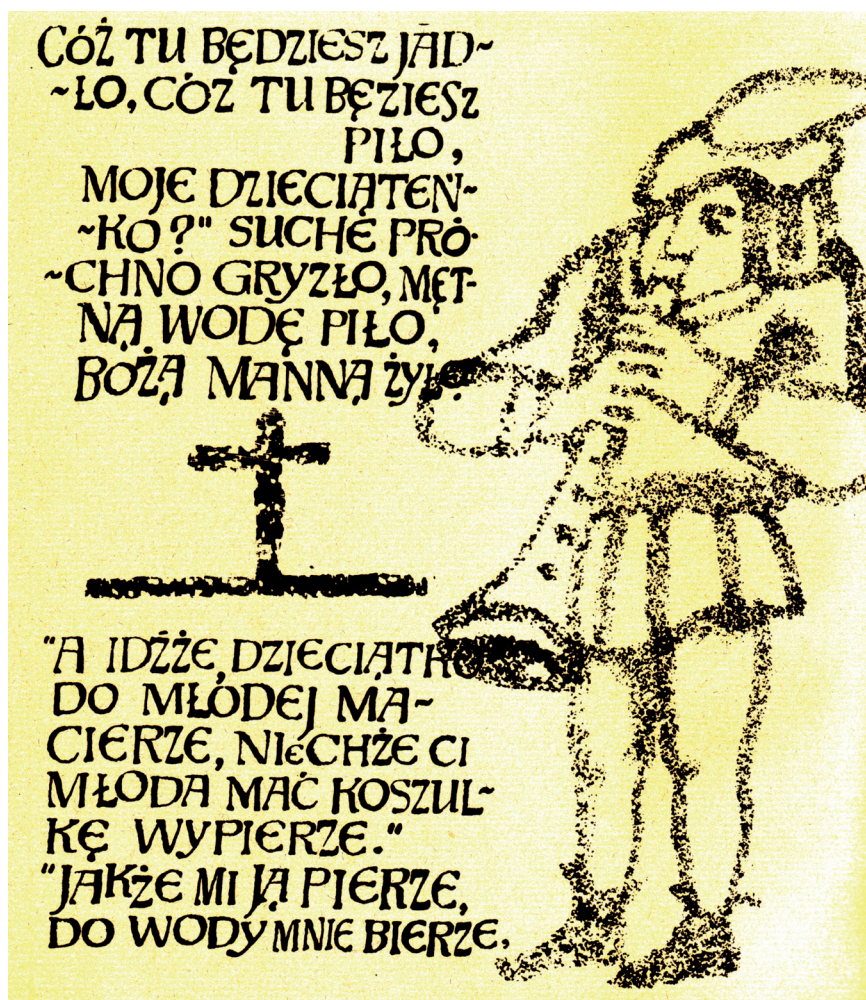 CÓŻ TU BĘDZIESZ JĀD~
~ŁO, CÓŻ TU BĘZIESZ
PIŁO,
MOJE DZIECIĄTEŃ~
~KO?" SUCHE PRÓ-
~CHNO GRYZŁO, MĘT-
NĄ WODĘ PIŁO,
BOŻĄ MANNĄ ŻYŁO
"A IDŹŻE, DZIECIĄTKO
DO MŁÓDEJ MA~
CIERZE, NIECHŻE CI
MŁODA MAĆ KOSZUL~
KĘ WYPIERZE."
"JAKŻE MI JĄ PIERZE,
DO WODY MNIE BIERZE,